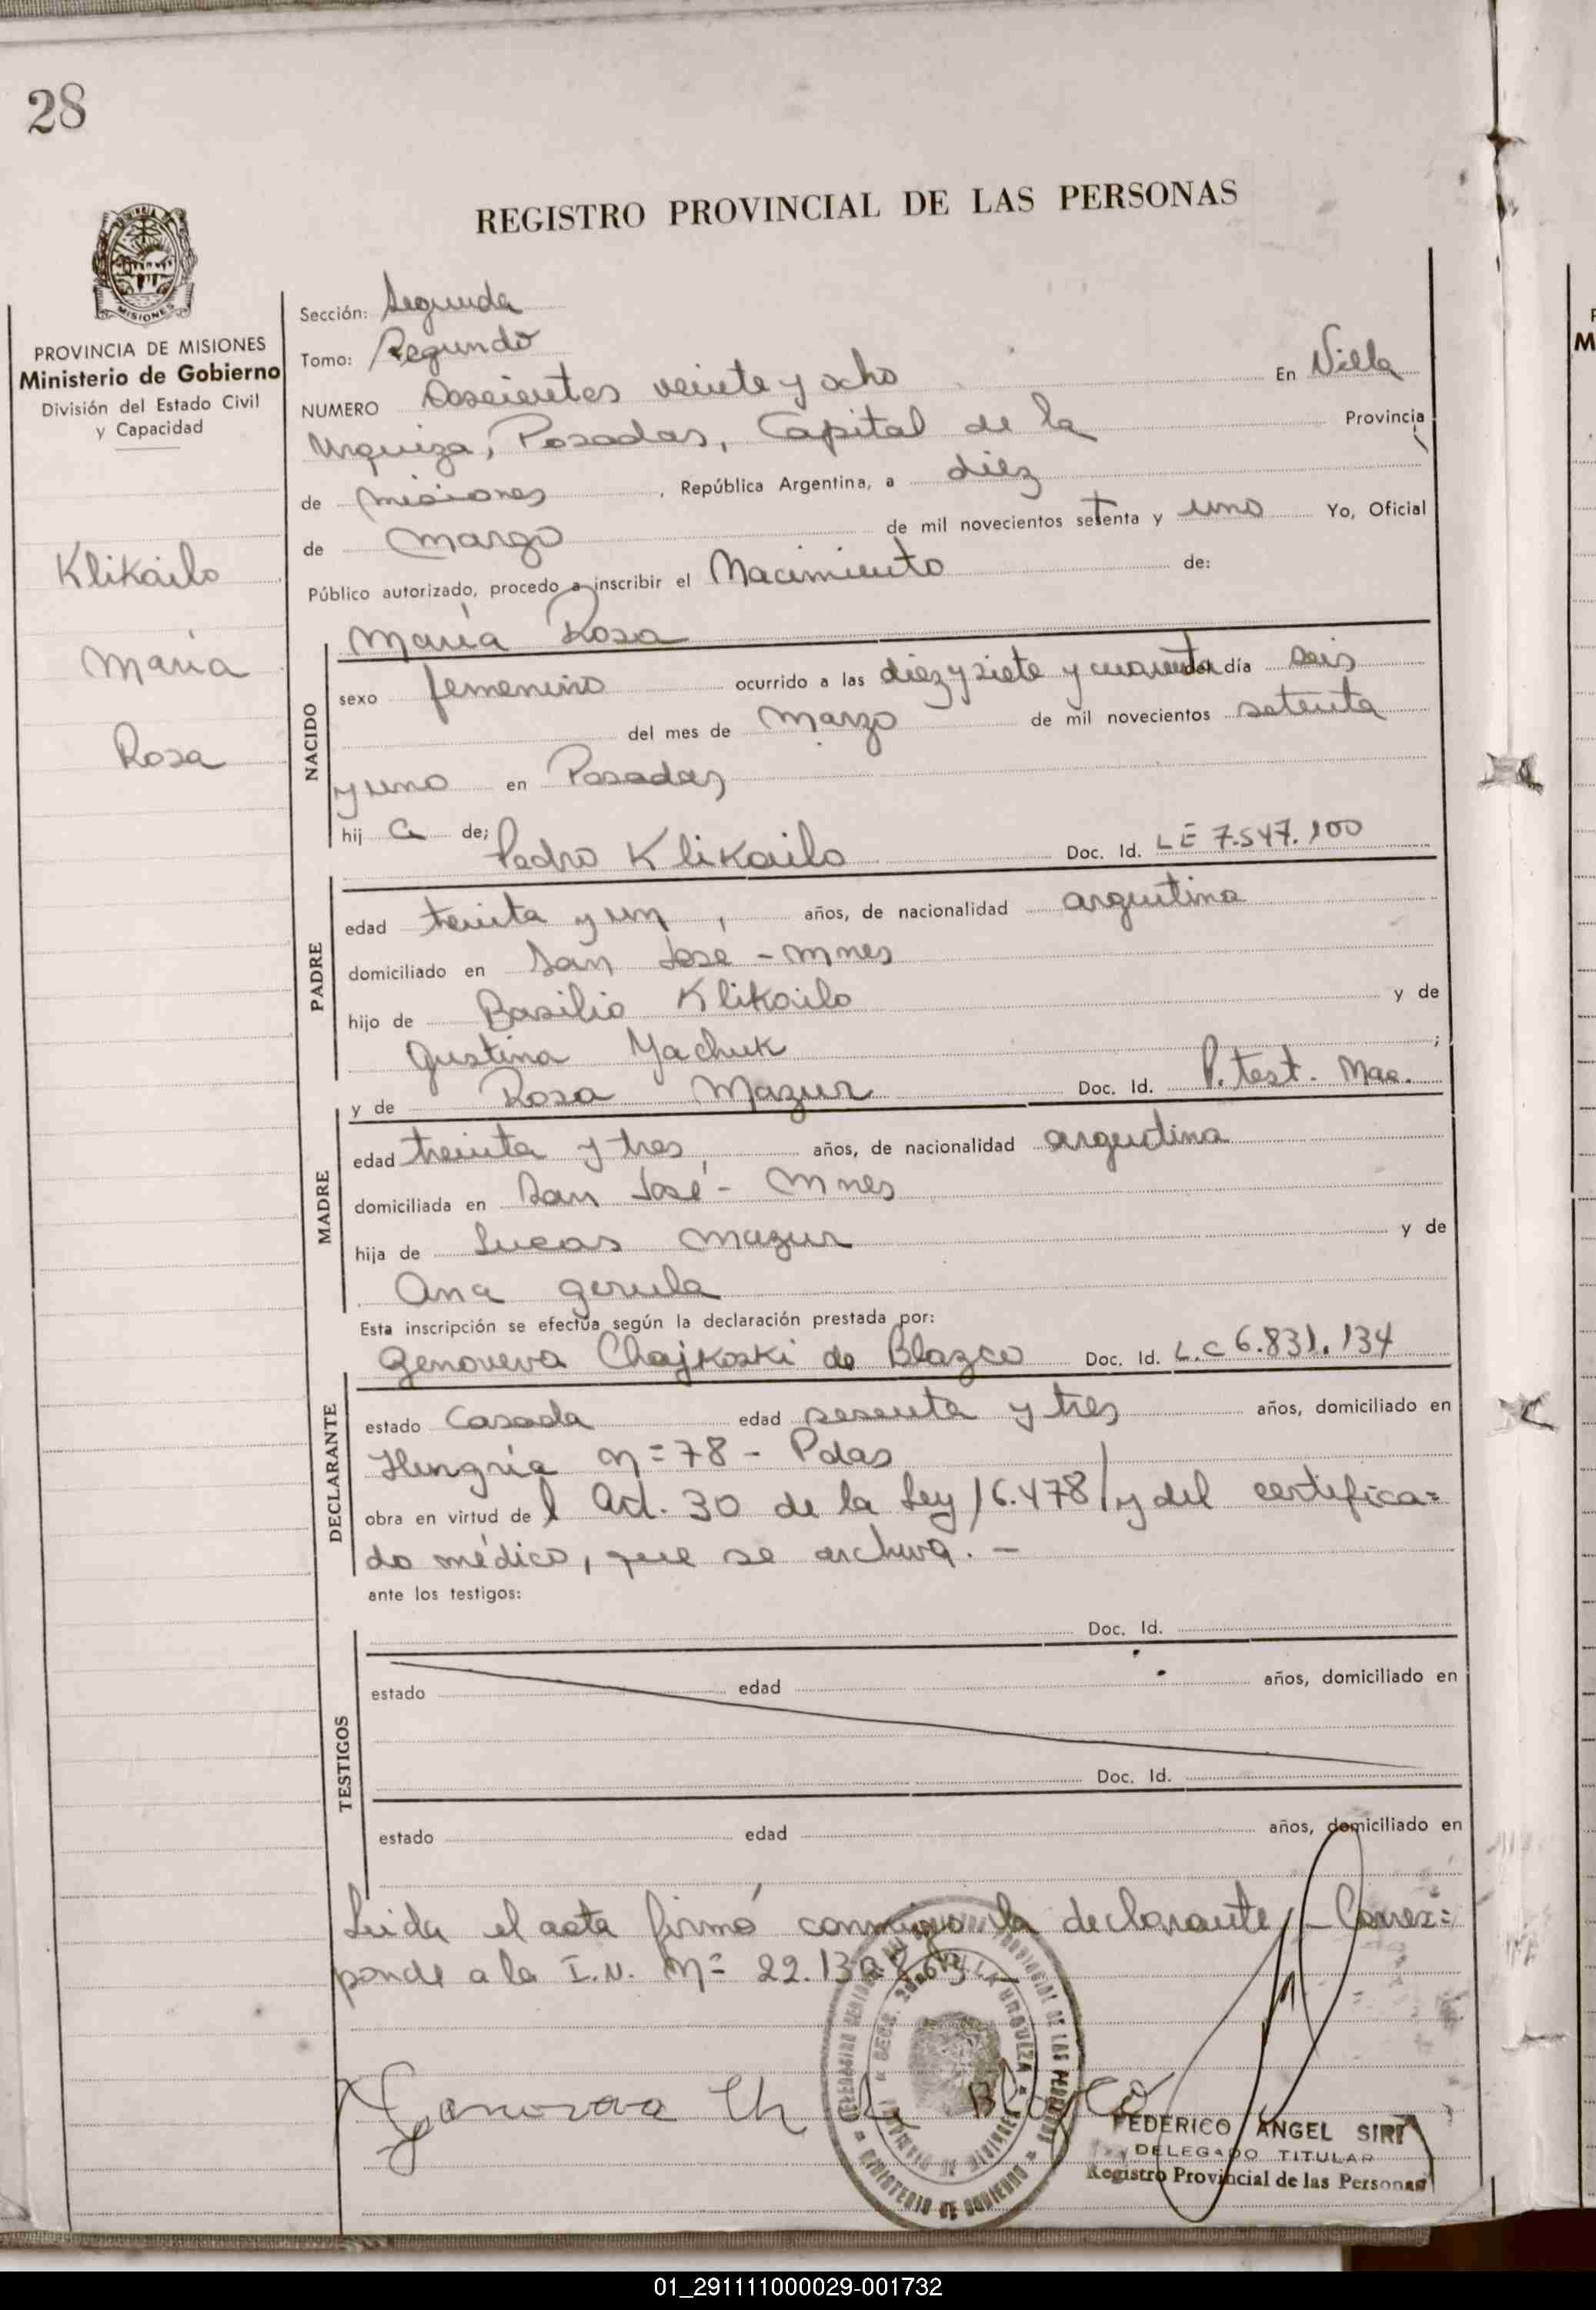 28
REGISTRO PROVINCIAL DE LAS PERSONAS
MISIONES
PROVINCIA DE MISIONES
Ministerio de Gobierno
División del Estado Civil
y Capacidad
Klikailo
María
Rosa
Sección: Segunda
Tomo: Segundo
NUMERO Doscientos veinte y ocho En Villa
Urquiza, Posadas, Capital de la Provincia
de Misiones, República Argentina, a diez
de Marzo de mil novecientos setenta y uno Yo, Oficial
Público autorizado, procedo a inscribir el Nacimiento de:
María Rosa
NACIDO
sexo femenino ocurrido a las diez y siete y cuarenta del día seis
del mes de Marzo de mil novecientos setenta
y uno en Posadas
hij a de; Pedro Klikailo Doc. Id. LE 7.547.100
PADRE
edad treinta y un, años, de nacionalidad argentina
domiciliado en San José - Mnes
hijo de Basilio Klikailo y de
Gustina Yachuk ;
y de Rosa Mazur Doc. Id. P. test. Mae.
MADRE
edad treinta y tres, años, de nacionalidad argentina
domiciliada en San José - Mnes
hija de Lucas Mazur y de
Ana Gerula
Esta inscripción se efectúa según la declaración prestada por:
Genoveva Chajkoski de Blazco Doc. Id. L.C 6.831.134
DECLARANTE
estado Casada edad sesenta y tres años, domiciliado en
Hungría N= 78 - Pdas
obra en virtud de l Art. 30 de la Ley 16.478/ y del certifica=
do médico, que se archiva. -
ante los testigos:
TESTIGOS
Doc. Id.
estado edad años, domiciliado en
Doc. Id.
estado edad años, domiciliado en
Leída el acta firmó conmigo la declarante, - Corres=
ponde a la I.N. N=
Genoveva Ch de Blazco
FEDERICO ANGEL SIRI
DELEGADO TITULAR
Registro Provincial de las Personas
01_291111000029-001732